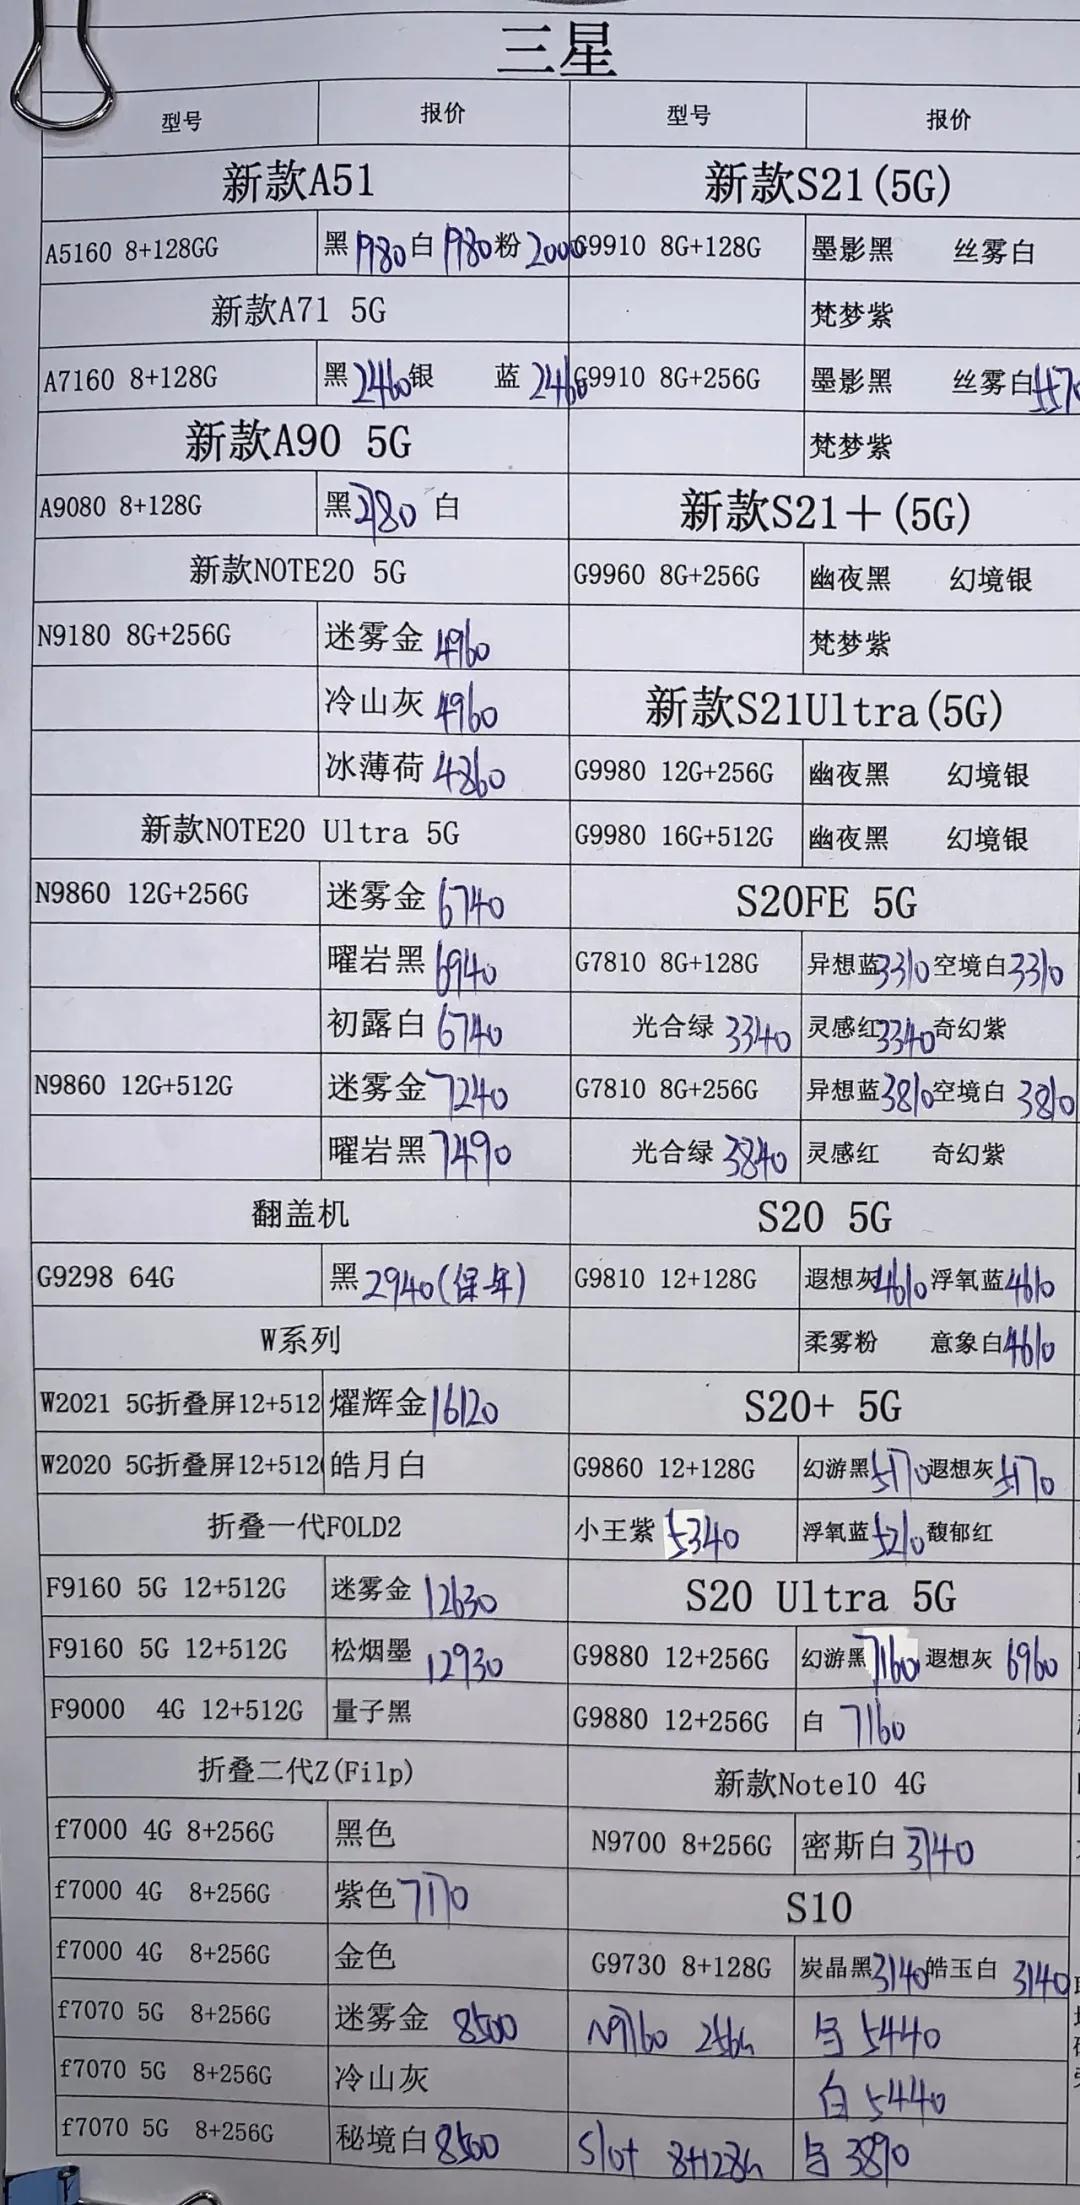 三星
型号 报价 型号 报价
新款A51 新款S21(5G)
A5160 8+128GG 黑1980白1980粉2000 G9910 8G+128G 墨影黑 丝雾白
新款A71 5G 梵梦紫
A7160 8+128G 黑2460银 蓝2460 G9910 8G+256G 墨影黑 丝雾白5570
新款A90 5G 梵梦紫
A9080 8+128G 黑2780 白 新款S21+(5G)
新款NOTE20 5G G9960 8G+256G 幽夜黑 幻境银
N9180 8G+256G 迷雾金4960 梵梦紫
冷山灰4960 新款S21Ultra(5G)
冰薄荷4860 G9980 12G+256G 幽夜黑 幻境银
新款NOTE20 Ultra 5G G9980 16G+512G 幽夜黑 幻境银
N9860 12G+256G 迷雾金6740 S20FE 5G
曜岩黑6940 G7810 8G+128G 异想蓝3310空境白3310
初露白6740 光合绿3340 灵感红3340奇幻紫
N9860 12G+512G 迷雾金7240 G7810 8G+256G 异想蓝3810空境白3810
曜岩黑7490 光合绿3840 灵感红 奇幻紫
翻盖机 S20 5G
G9298 64G 黑2940(保年) G9810 12+128G 遐想灰4610浮氧蓝4610
W系列 柔雾粉 意象白4610
W2021 5G折叠屏12+512 熠辉金16120 S20+ 5G
W2020 5G折叠屏12+512 皓月白 G9860 12+128G 幻游黑5170遐想灰5170
折叠一代FOLD2 小王紫5340 浮氧蓝5210馥郁红
F9160 5G 12+512G 迷雾金12630 S20 Ultra 5G
F9160 5G 12+512G 松烟墨12930 G9880 12+256G 幻游黑7160 遐想灰6960
F9000 4G 12+512G 量子黑 G9880 12+256G 白 7160
折叠二代Z(Filp) 新款Note10 4G
f7000 4G 8+256G 黑色 N9700 8+256G 密斯白3140
f7000 4G 8+256G 紫色7170 S10
f7000 4G 8+256G 金色 G9730 8+128G 炭晶黑3140皓玉白3140
f7070 5G 8+256G 迷雾金8500 N9760 256G 5440
f7070 5G 8+256G 冷山灰 白5440
f7070 5G 8+256G 秘境白8500 S10+ 8+128G 3890